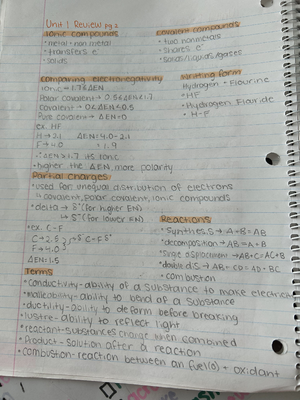 Unit 1 Review pg 2
Ionic compounds
• metal + non metal
• transfers e⁻
• solids
Covalent compounds
• two nonmetals
• shares e⁻
• solids/liquids/gases
Comparing electronegativity
Ionic = 1.7≤ΔEN
Polar covalent → 0.5≤ΔEN≤1.7
Covalent → 0≤ΔEN≤0.5
Pure covalent → ΔEN=0
ex HF
H → 2.1 ΔEN = 4.0-2.1
F → 4.0 = 1.9
ΔEN≥1.7 its ionic
• higher the ΔEN more polarity
Writing form
Hydrogen + Flourine
• HF
• Hydrogen
• H-F
Partial Charges
• used for unequal distribution of electrons
↳ covalent, polar covalent, ionic compounds
• delta → δ⁻ (for higher EN)
↳ δ⁺ (for lower EN)
• ex. C-F
C → 2.5 δ⁺ C-F δ⁻
F → 4.0
ΔEN = 1.5
Reactions
• Synthesis → A+B=AB
• decomposition → AB=A+B
• Single displacement → AB+C=AC+B
• double dis → AB+CD=AD+BC
• combustion
Terms
• conductivity - ability of a substance to make electricity
• malleability - ability to bend of a substance
• ductility - ability to deform before breaking
• lustre - ability to reflect light
• reactant - substances change when combined
• Product - solution after a reaction
• combustion - reaction between an fuel(o) + oxidant